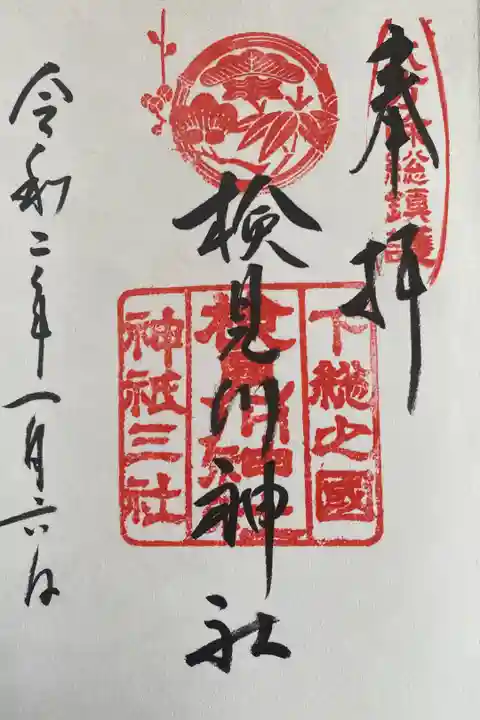 奉拝
総鎮護
下総之國
検見川神社
神祇三社
令和二年一月六日